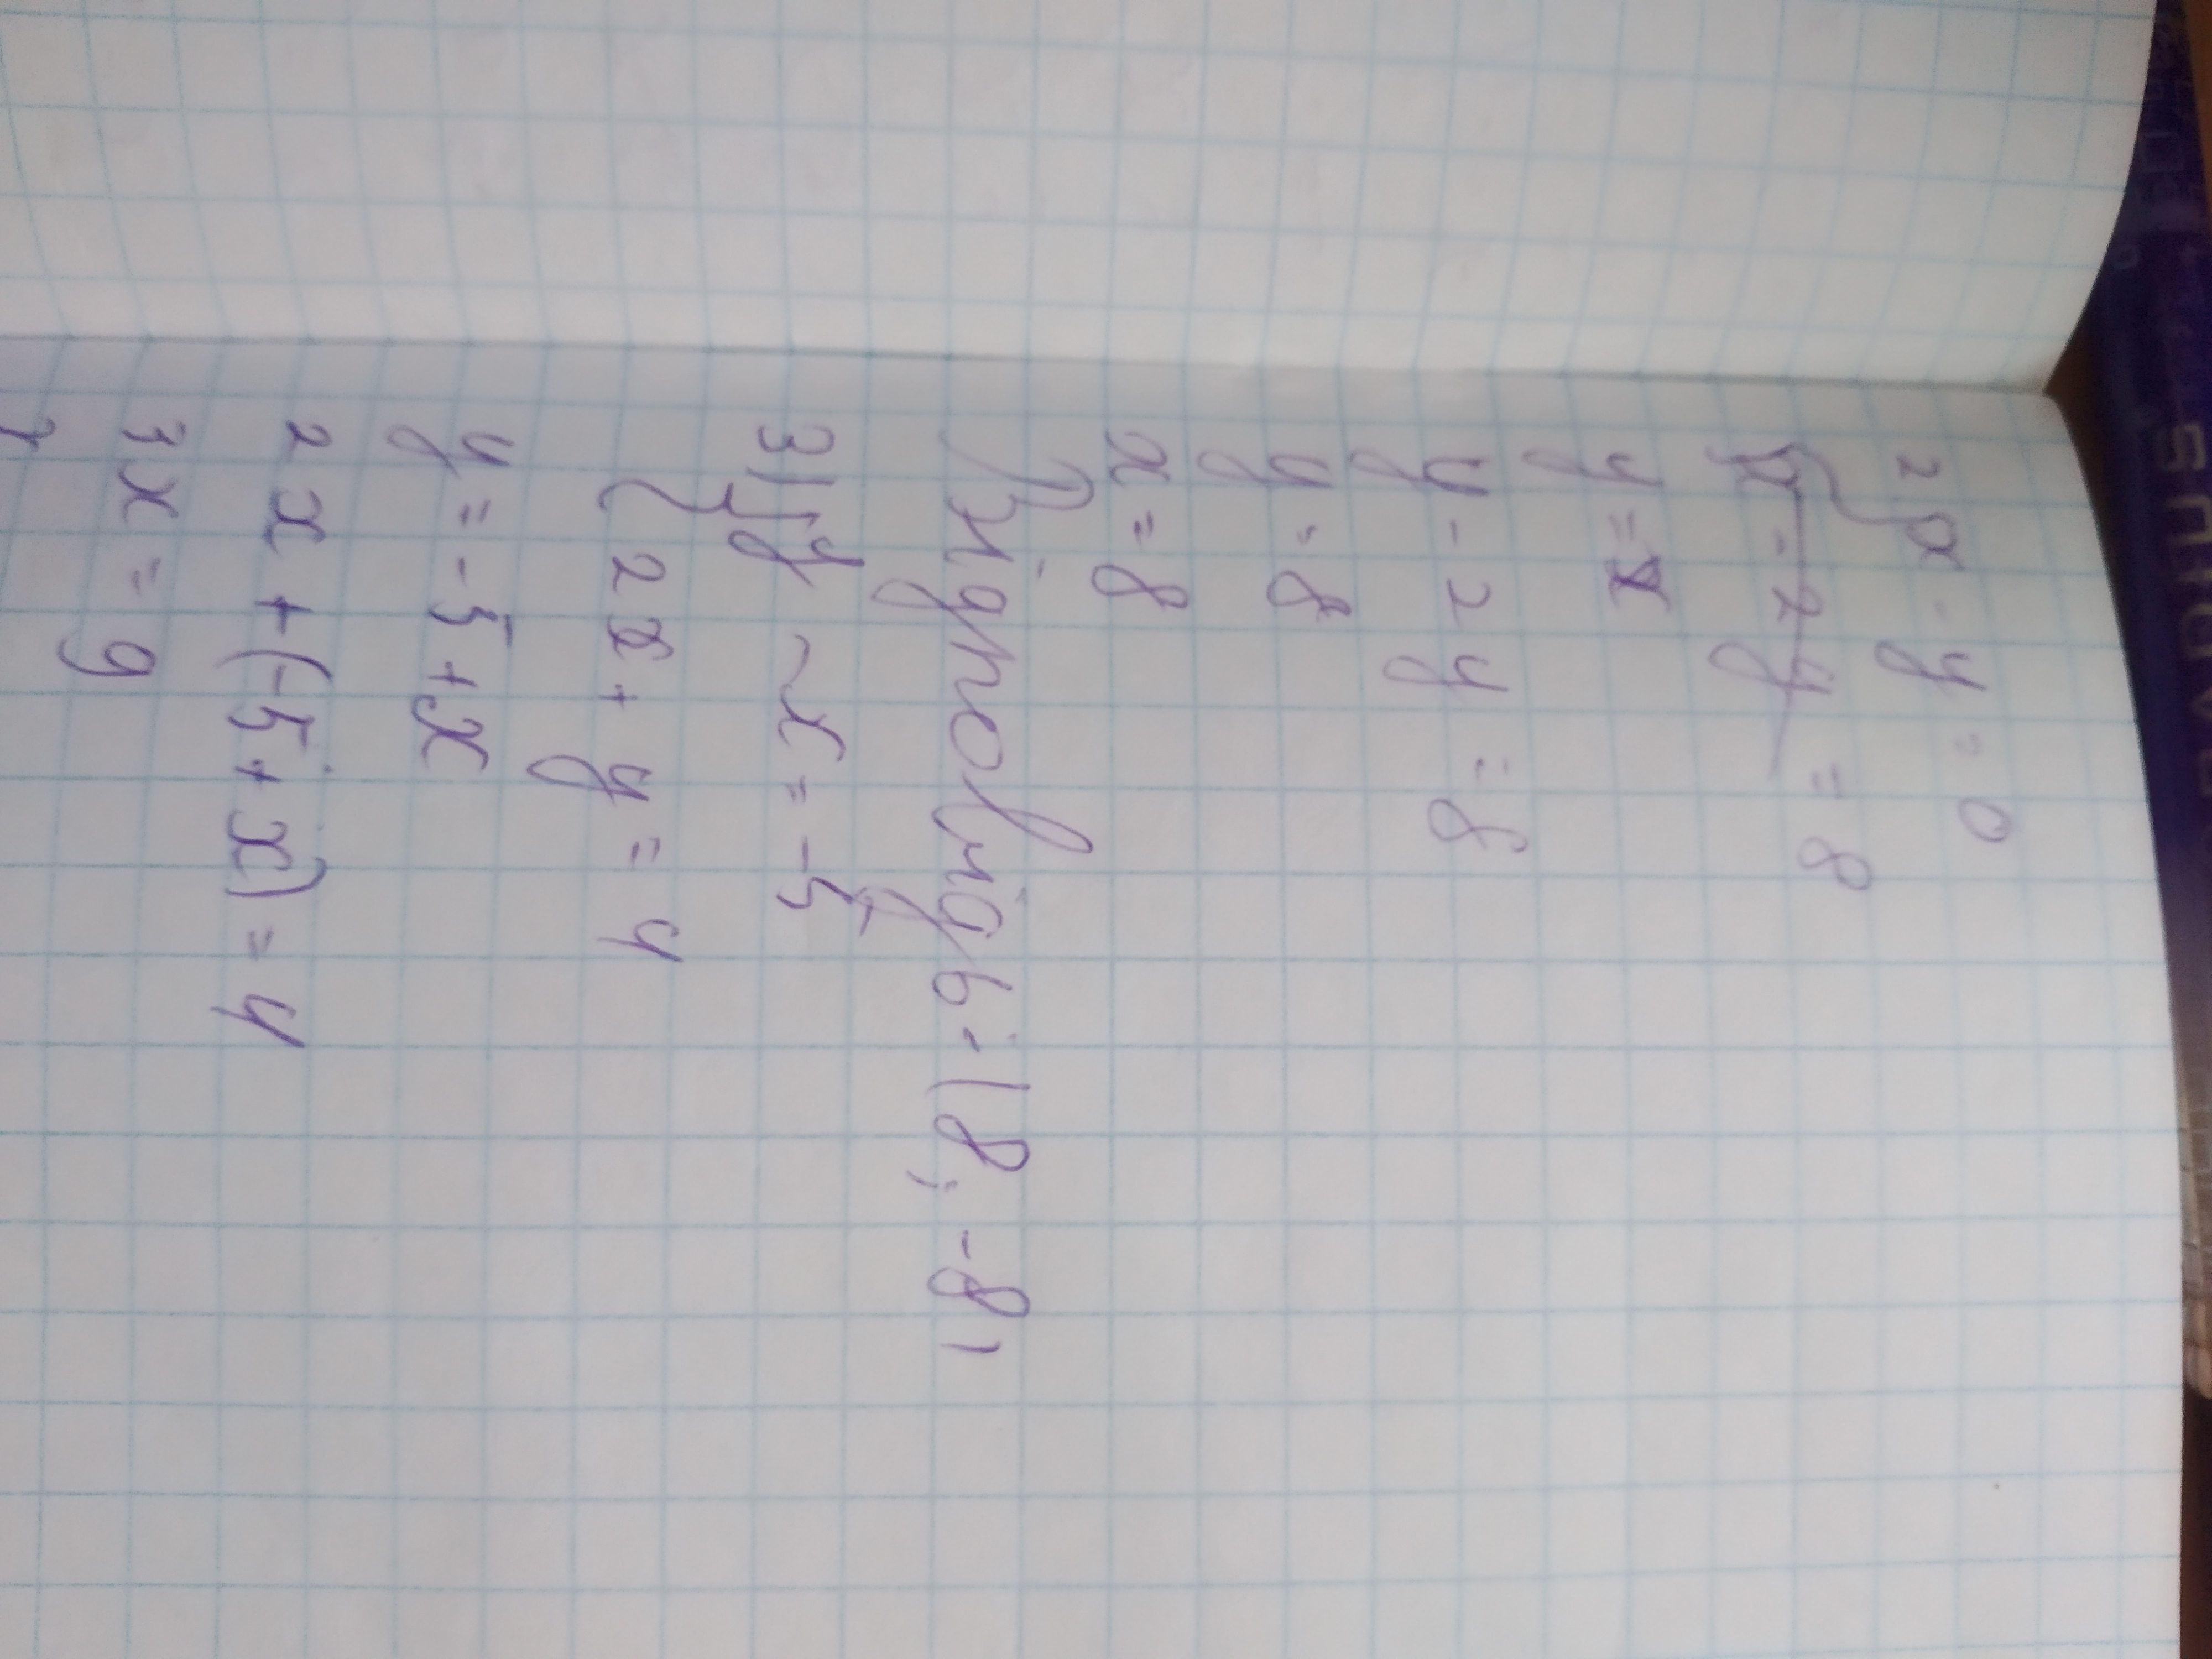 2 x - y = 0
x - 2y = 8
y = x
y - 2y = 8
y = 8
x = 8
Відповідь: (8; -8)
3) { y - x = -5
{ 2x + y = 4
y = -5 + x
2x + (-5 + x) = 4
3x = 9